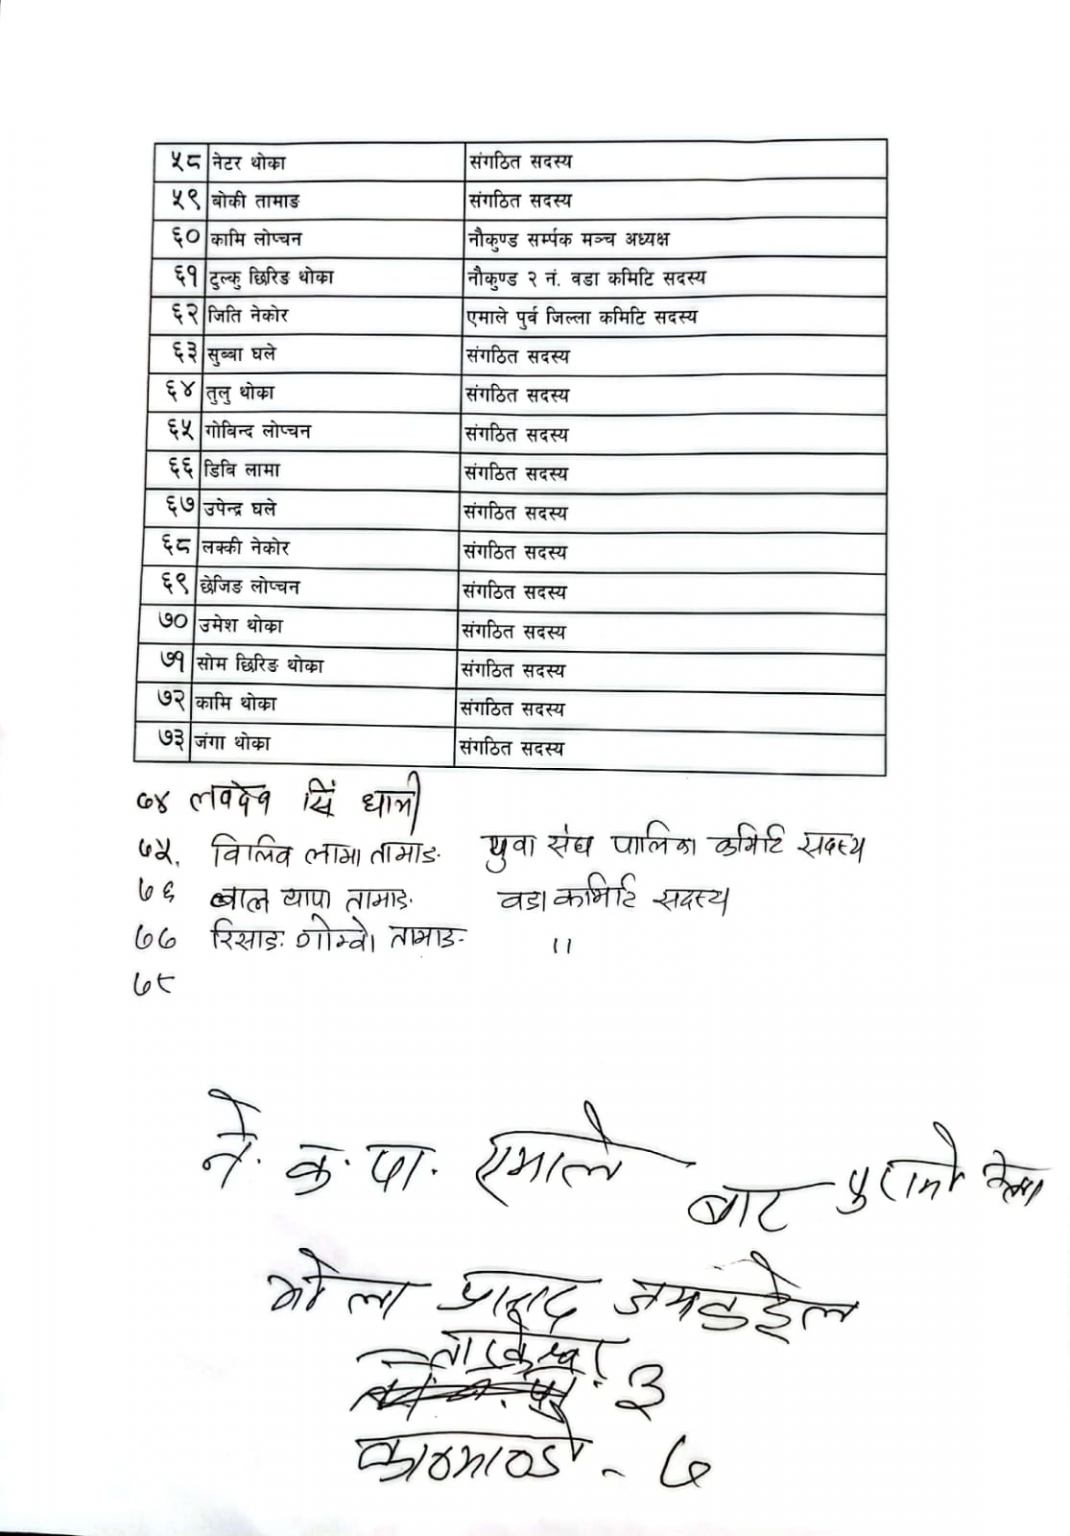 ५८ नेटर थोका संगठित सदस्य
५९ बोकी तामाङ संगठित सदस्य
६० कामि लोप्चन नौकुण्ड सर्म्पक मञ्च अध्यक्ष
६१ टुल्कु छिरिङ थोका नौकुण्ड २ नं. वडा कमिटि सदस्य
६२ जिति नेकोर एमाले पुर्व जिल्ला कमिटि सदस्य
६३ सुब्बा घले संगठित सदस्य
६४ तुलु थोका संगठित सदस्य
६५ गोबिन्द लोप्चन संगठित सदस्य
६६ डिबि लामा संगठित सदस्य
६७ उपेन्द्र घले संगठित सदस्य
६८ लक्की नेकोर संगठित सदस्य
६९ छेजिङ लोप्चन संगठित सदस्य
७० उमेश थोका संगठित सदस्य
७१ सोम छिरिङ थोका संगठित सदस्य
७२ कामि थोका संगठित सदस्य
७३ जंगा थोका संगठित सदस्य
७४ लवदेव सिं धामी
७५. लामा तामाङ युवा संघ पालिका कमिटि सदस्य
७६ बाल थापा तामाङ वडा कमिटि सदस्य
७७ रिसाङ गोम्बो तामाङ "
७८
ने. क. पा. एमाले बाट पुरानो
भोला प्रसाद
३
काठमाण्डौ - ७